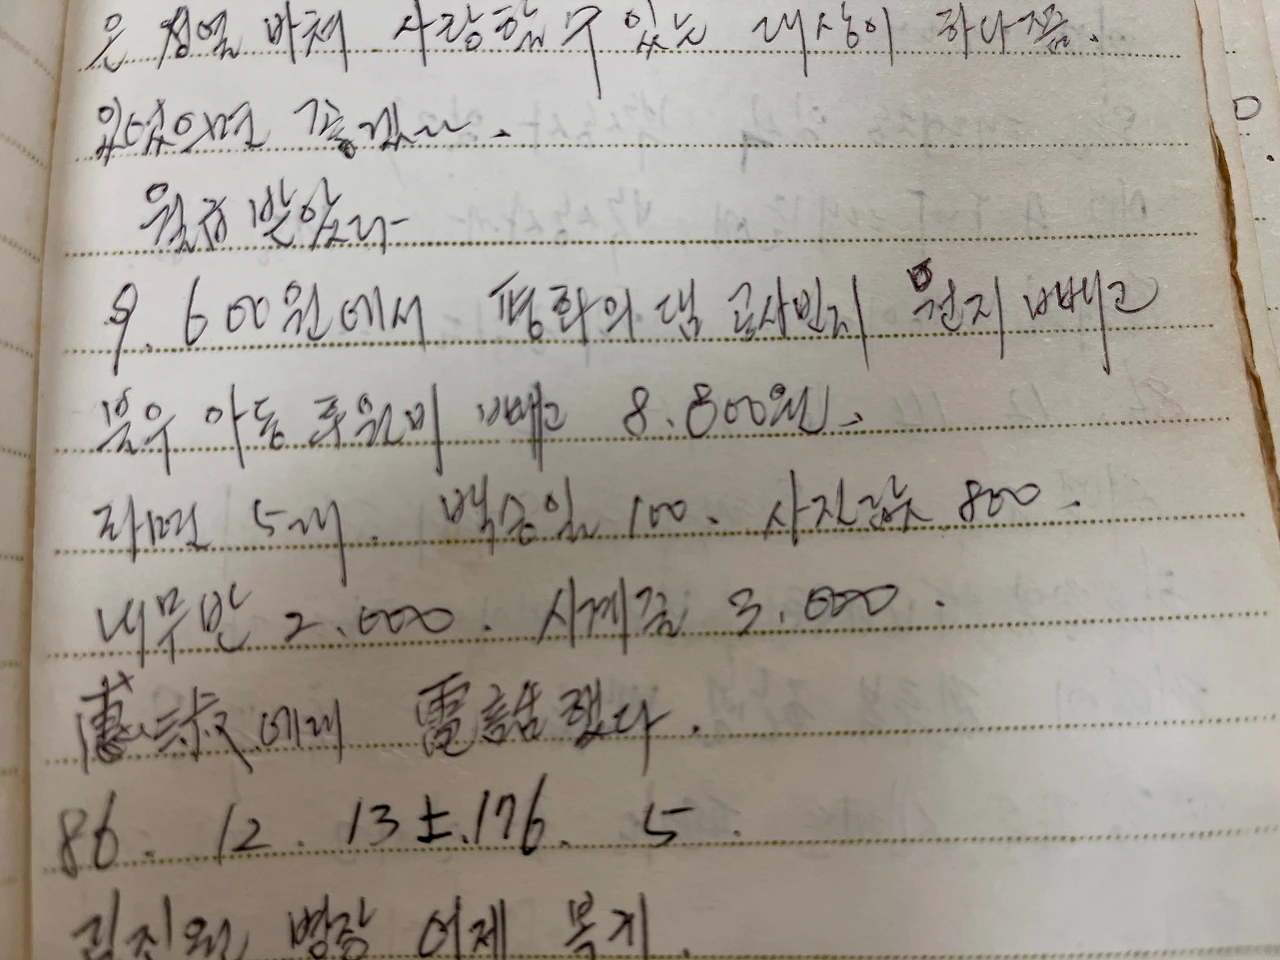 은 정열 바쳐 사랑할 수 있는 대상이 하나쯤.
있었으면 좋겠~.
월급 받았다
9.600원에서 평화의 댐 공사비지 원지 빼고
불우 아동 후원비 빼고 8.800원.
라면 5개. 백승일 100. 사진값 800.
내무반 2.000. 시계줄 3.000.
惠淑에게 電話했다.
86. 12. 13 土. 176. 5.
김진원 병장 어제 복귀.